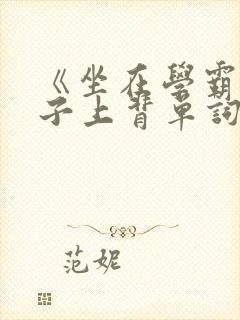 《坐在學霸
子上背單詞
范妮